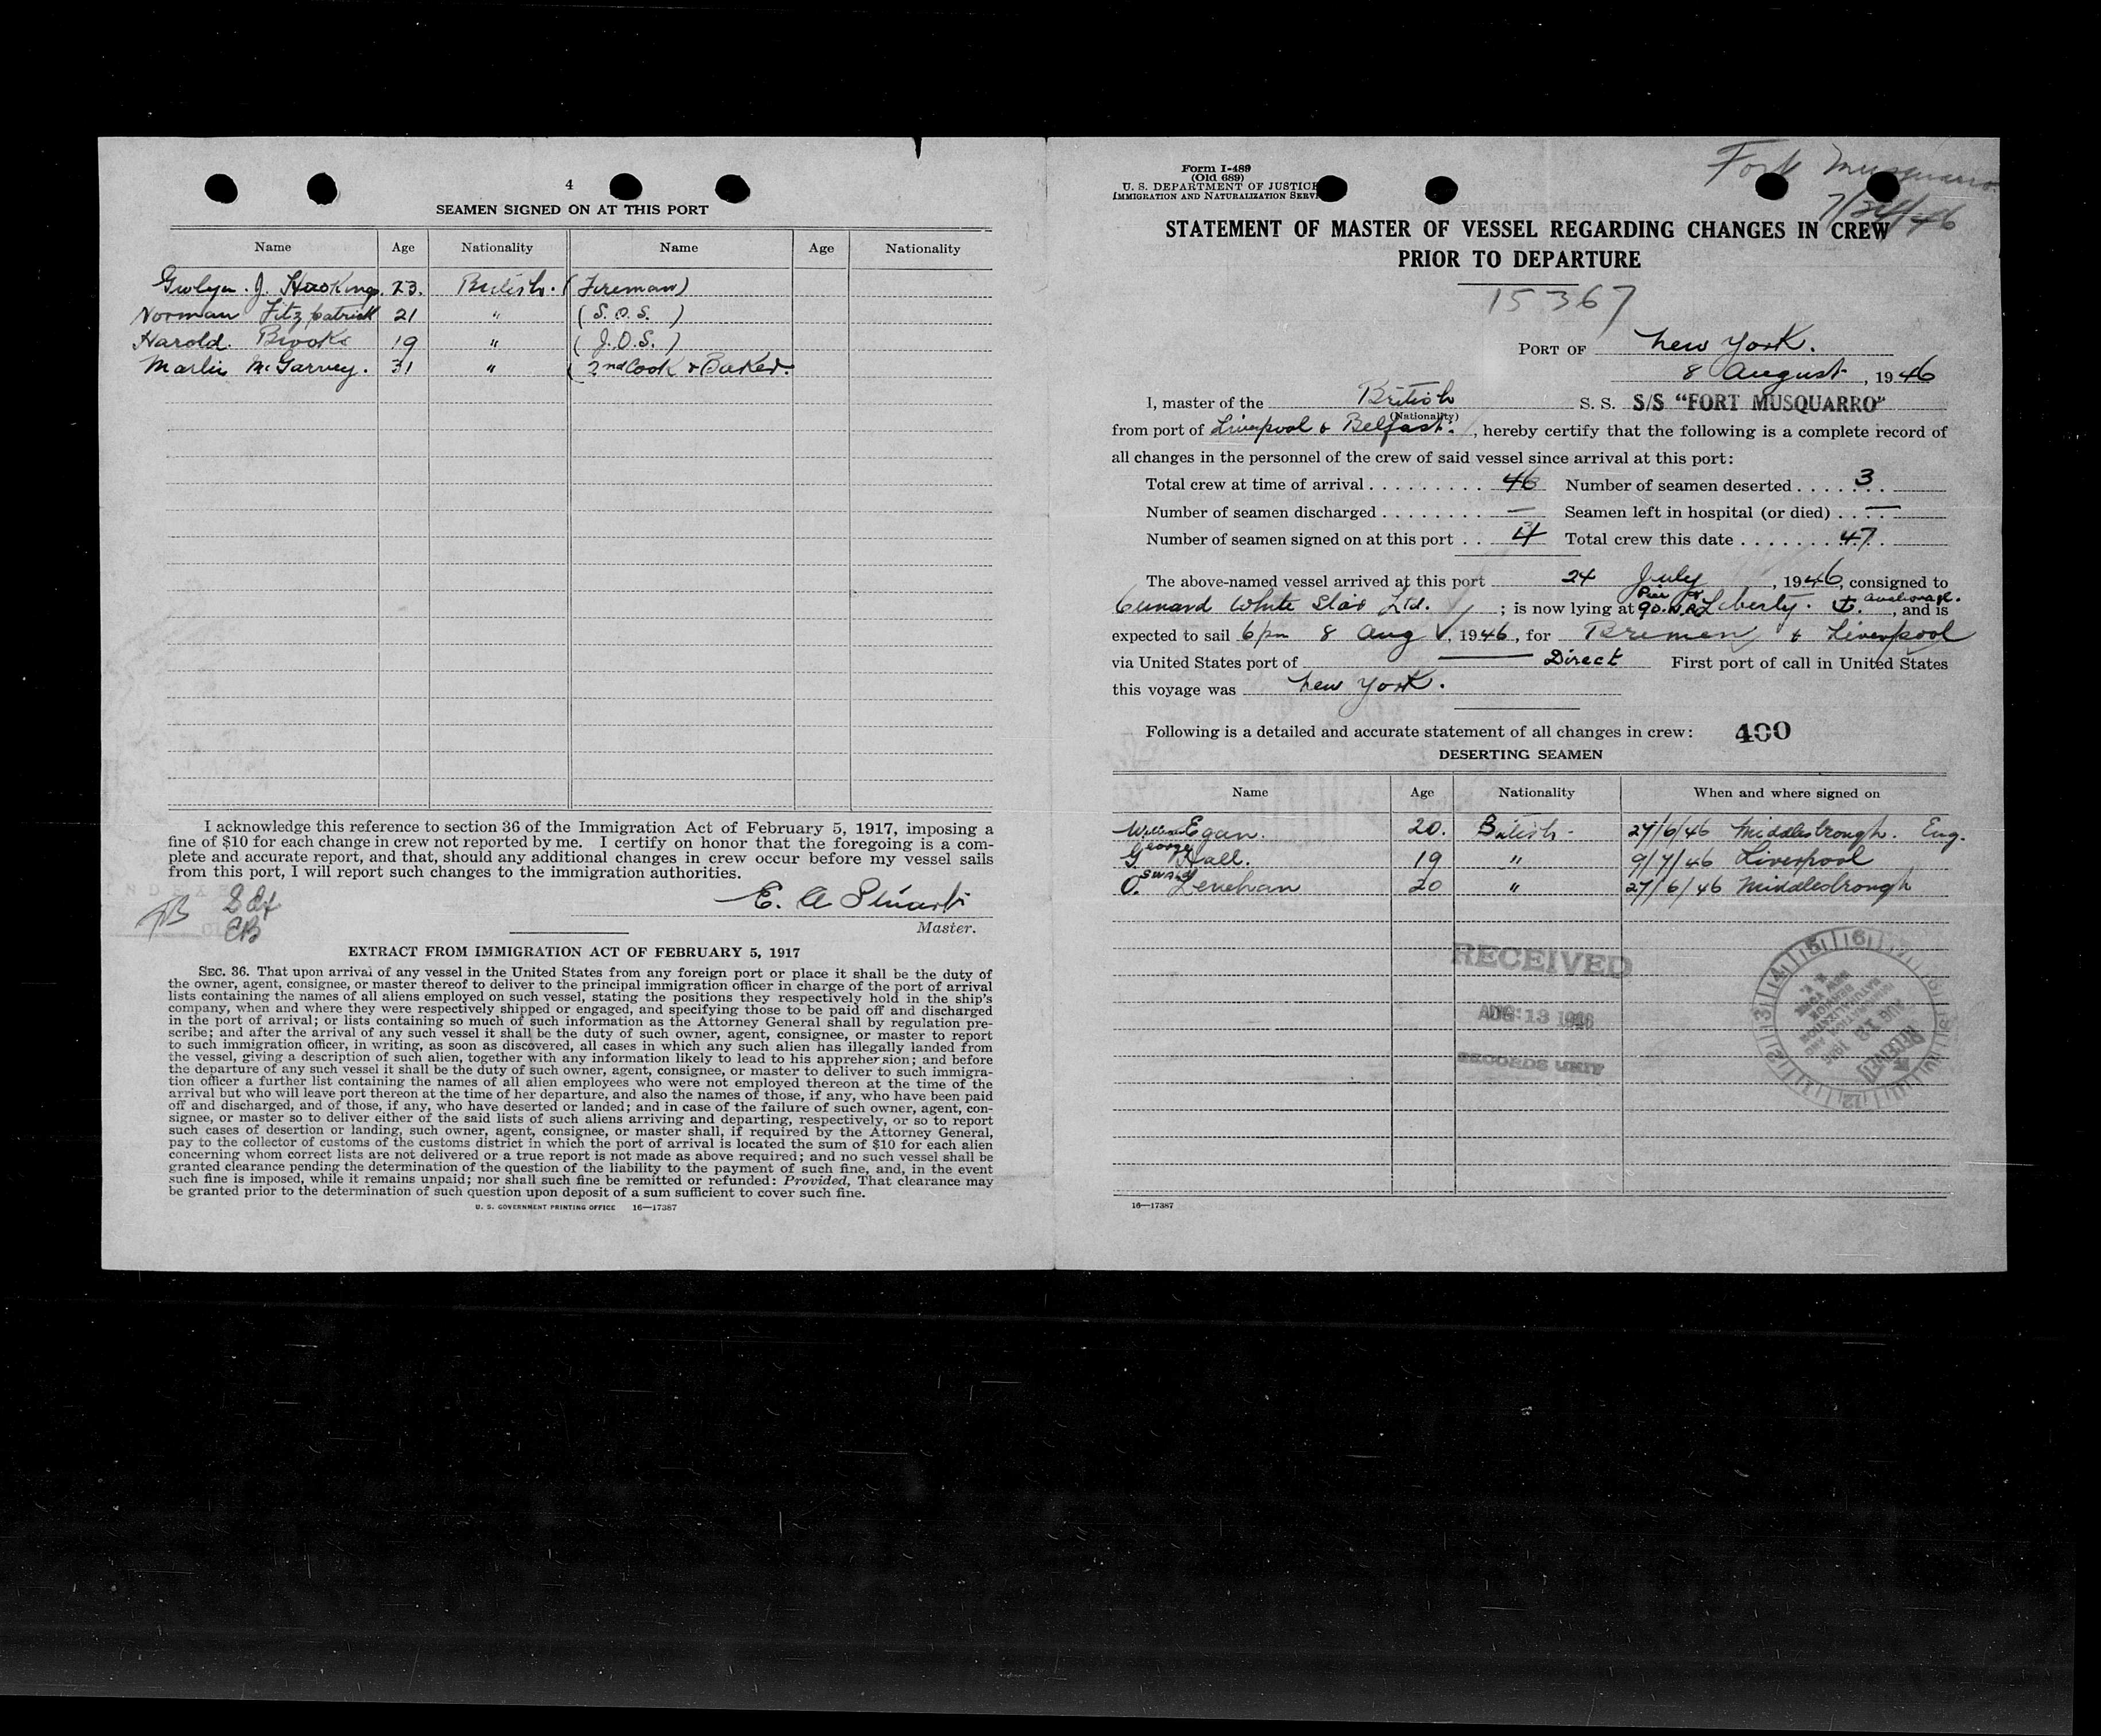 4
SEAMEN SIGNED ON AT THIS PORT
Name Age Nationality Name Age Nationality
Gwlyn. J. Hosking. 23. British. (Fireman)
Norman Fitzpatrick 21 " (S.O.S.)
Harold. Brooks 19 " (J.O.S.)
Martin McGarvey. 31 " (2nd Cook & Baker.
I acknowledge this reference to section 36 of the Immigration Act of February 5, 1917, imposing a
fine of $10 for each change in crew not reported by me. I certify on honor that the foregoing is a com-
plete and accurate report, and that, should any additional changes in crew occur before my vessel sails
from this port, I will report such changes to the immigration authorities.
E. A. Stuart
Master.
EB
EXTRACT FROM IMMIGRATION ACT OF FEBRUARY 5, 1917
SEC. 36. That upon arrival of any vessel in the United States from any foreign port or place it shall be the duty of
the owner, agent, consignee, or master thereof to deliver to the principal immigration officer in charge of the port of arrival
lists containing the names of all aliens employed on such vessel, stating the positions they respectively hold in the ship's
company, when and where they were respectively shipped or engaged, and specifying those to be paid off and discharged
in the port of arrival; or lists containing so much of such information as the Attorney General shall by regulation pre-
scribe; and after the arrival of any such vessel it shall be the duty of such owner, agent, consignee, or master to report
to such immigration officer, in writing, as soon as discovered, all cases in which any such alien has illegally landed from
the vessel, giving a description of such alien, together with any information likely to lead to his apprehension; and before
the departure of any such vessel it shall be the duty of such owner, agent, consignee, or master to deliver to such immigra-
tion officer a further list containing the names of all alien employees who were not employed thereon at the time of the
arrival but who will leave port thereon at the time of her departure, and also the names of those, if any, who have been paid
off and discharged, and of those, if any, who have deserted or landed; and in case of the failure of such owner, agent, con-
signee, or master so to deliver either of the said lists of such aliens arriving and departing, respectively, or so to report
such cases of desertion or landing, such owner, agent, consignee, or master shall, if required by the Attorney General,
pay to the collector of customs of the customs district in which the port of arrival is located the sum of $10 for each alien
concerning whom correct lists are not delivered or a true report is not made as above required; and no such vessel shall be
granted clearance pending the determination of the question of the liability to the payment of such fine, and, in the event
such fine is imposed, while it remains unpaid; nor shall such fine be remitted or refunded: Provided, That clearance may
be granted prior to the determination of such question upon deposit of a sum sufficient to cover such fine.
U. S. GOVERNMENT PRINTING OFFICE 16—17387
Form I-489
(Old 689)
U. S. DEPARTMENT OF JUSTICE
IMMIGRATION AND NATURALIZATION SERVI
Fort Musquarro
7/24/46
STATEMENT OF MASTER OF VESSEL REGARDING CHANGES IN CREW
PRIOR TO DEPARTURE
15367
PORT OF New York.
8 August, 1946
I, master of the British S. S. S/S "FORT MUSQUARRO"
(Nationality)
from port of Liverpool & Belfast., hereby certify that the following is a complete record of
all changes in the personnel of the crew of said vessel since arrival at this port:
Total crew at time of arrival . . . . . . . . . 46 Number of seamen deserted . . . . . . . 3
Number of seamen discharged . . . . . . . . — Seamen left in hospital (or died) . . . . —
Number of seamen signed on at this port . . 4 Total crew this date . . . . . . . . . 47
The above-named vessel arrived at this port 24 July, 1946, consigned to
Cunard White Star Ltd. ; is now lying at Pier 90. N.R. Liberty. anchorage., and is
expected to sail 6pm 8 Aug, 1946, for Bremen & Liverpool
via United States port of — Direct First port of call in United States
this voyage was New York.
Following is a detailed and accurate statement of all changes in crew: 400
DESERTING SEAMEN
Name Age Nationality When and where signed on
William Egan. 20. British - 27/6/46 Middlesbrough. Eng.
George Hall. 19 " 9/7/46 Liverpool
Oswald Lenehan 20 " 27/6/46 Middlesbrough
RECEIVED
AUG 13 1946
RECORDS UNIT
RECEIVED
16—17387